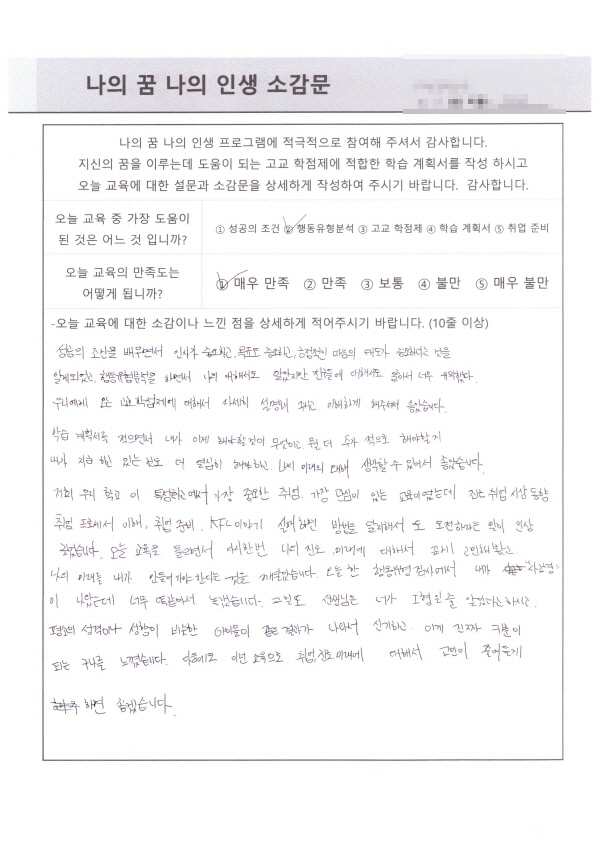 나의 꿈 나의 인생 소감문
나의 꿈 나의 인생 프로그램에 적극적으로 참여해 주셔서 감사합니다.
지신의 꿈을 이루는데 도움이 되는 고교 학점제에 적합한 학습 계획서를 작성 하시고
오늘 교육에 대한 설문과 소감문을 상세하게 작성하여 주시기 바랍니다. 감사합니다.
오늘 교육 중 가장 도움이
된 것은 어느 것 입니까?
① 성공의 조건 ② 행동유형분석 ③ 고교 학점제 ④ 학습 계획서 ⑤ 취업 준비
오늘 교육의 만족도는
어떻게 됩니까?
① 매우 만족 ② 만족 ③ 보통 ④ 불만 ⑤ 매우 불만
-오늘 교육에 대한 소감이나 느낀 점을 상세하게 적어주시기 바랍니다. (10줄 이상)
성공의 조건을 배우면서 인사가 중요하고, 목표도 중요하고, 긍정적인 마음의 태도가 중요하다는 것을
알게되었고, 행동유형분석을 하면서 나의 대해서도 알았지만 친구들에 대해서도 알아서 너무 유익했다.
우리에게 고교학점제에 대해서 자세히 설명해 주고, 이해하게 해주셔서 좋았습니다.
학습 계획서를 적으면서 내가 이제 해야할것이 무엇이고 뭘 더 추가 적으로 해야할지
내가 지금 하고 있는 진로 더 열심히 해야하고 나의 미래의 대해 생각할 수 있어서 좋았습니다.
저희 우리 학교 이 특성화고에서 가장 중요한 취업. 가장 관심이 있는 교육이였는데 고졸 취업 시장 동향
취업 프로세서 이해, 취업 준비, KFC 이야기 실패하면 방법을 달리해서 또 도전하라는 말이 인상
깊었습니다. 오늘 교육을 들으면서 다시한번 나의 진로, 미래에 대해서 깊게 고민해봤고,
나의 미래를 내가 만들어가야 한다는 것을 깨달았습니다. 오늘 한 행동유형 검사에서 내가 사교형
이 나왔는데 너무 똑같아서 놀랐습니다. 선생님은 너가 I형인줄 알았다고하시고.
평소의 성격이나 성향이 비슷한 아이들이 같은 결과가 나와서 신기하고 이게 진짜 구분이
되는 구나를 느꼈습니다. 다음에도 이런 교육으로 취업, 진로, 미래에 대해서 고민이 줄어들게
하면 좋겠습니다.